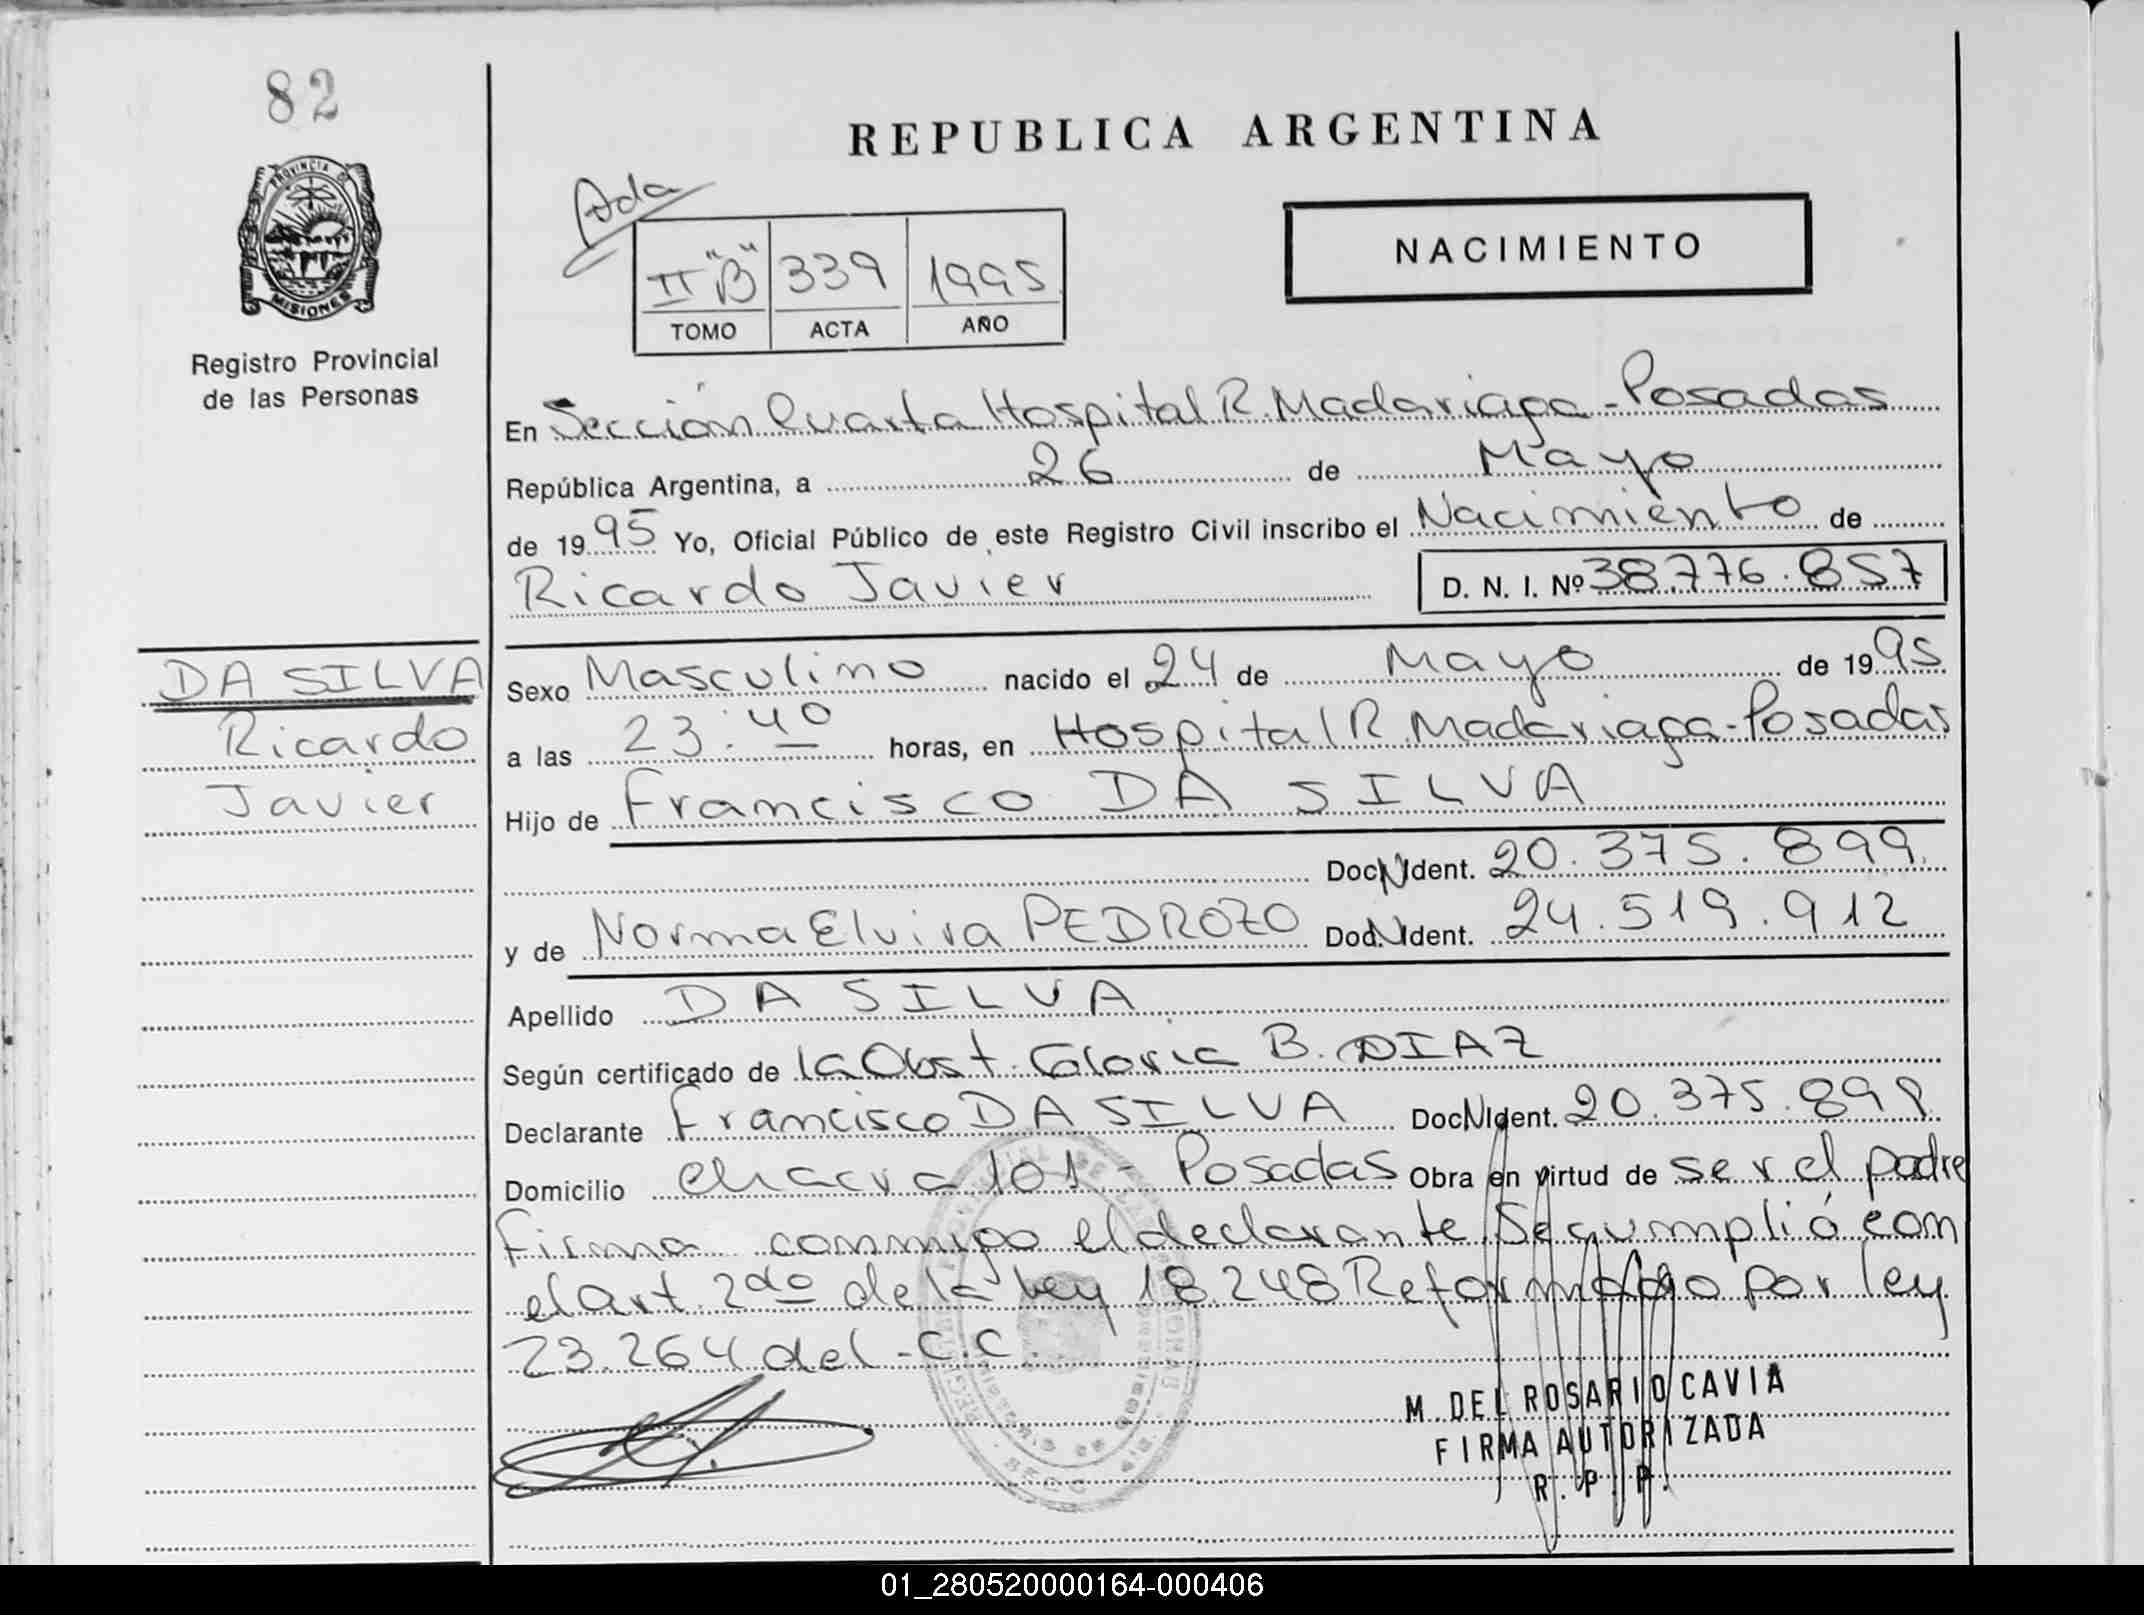 82
REPUBLICA ARGENTINA
Ada
PROVINCIA D
MISIONES
II "B" 339 1995
TOMO ACTA AÑO
NACIMIENTO
Registro Provincial
de las Personas
En Sección Cuarta Hospital R. Madariaga - Posadas
República Argentina, a 26 de Mayo
de 1995 Yo, Oficial Público de este Registro Civil inscribo el Nacimiento de
Ricardo Javier D. N. I. Nº 38.776.857
DA SILVA
Ricardo
Javier
Sexo Masculino nacido el 24 de Mayo de 1995
a las 23:40 horas, en Hospital R. Madariaga - Posadas
Hijo de Francisco DA SILVA
Doc. N Ident. 20.375.899
y de Norma Elvira PEDROZO Doc. N Ident. 24.519.912
Apellido DA SILVA
Según certificado de la Obst. Gloria B. DIAZ
Declarante Francisco DA SILVA Doc. N Ident. 20.375.899
Domicilio chacra 101 - Posadas Obra en virtud de ser el padre
firma conmigo el declarante. Se cumplió con
el art. 2do de la ley 18.248 Reformado por ley
23.264 del - C.C.
M. DEL ROSARIO CAVIA
FIRMA AUTORIZADA
R. P. P.
01_280520000164-000406